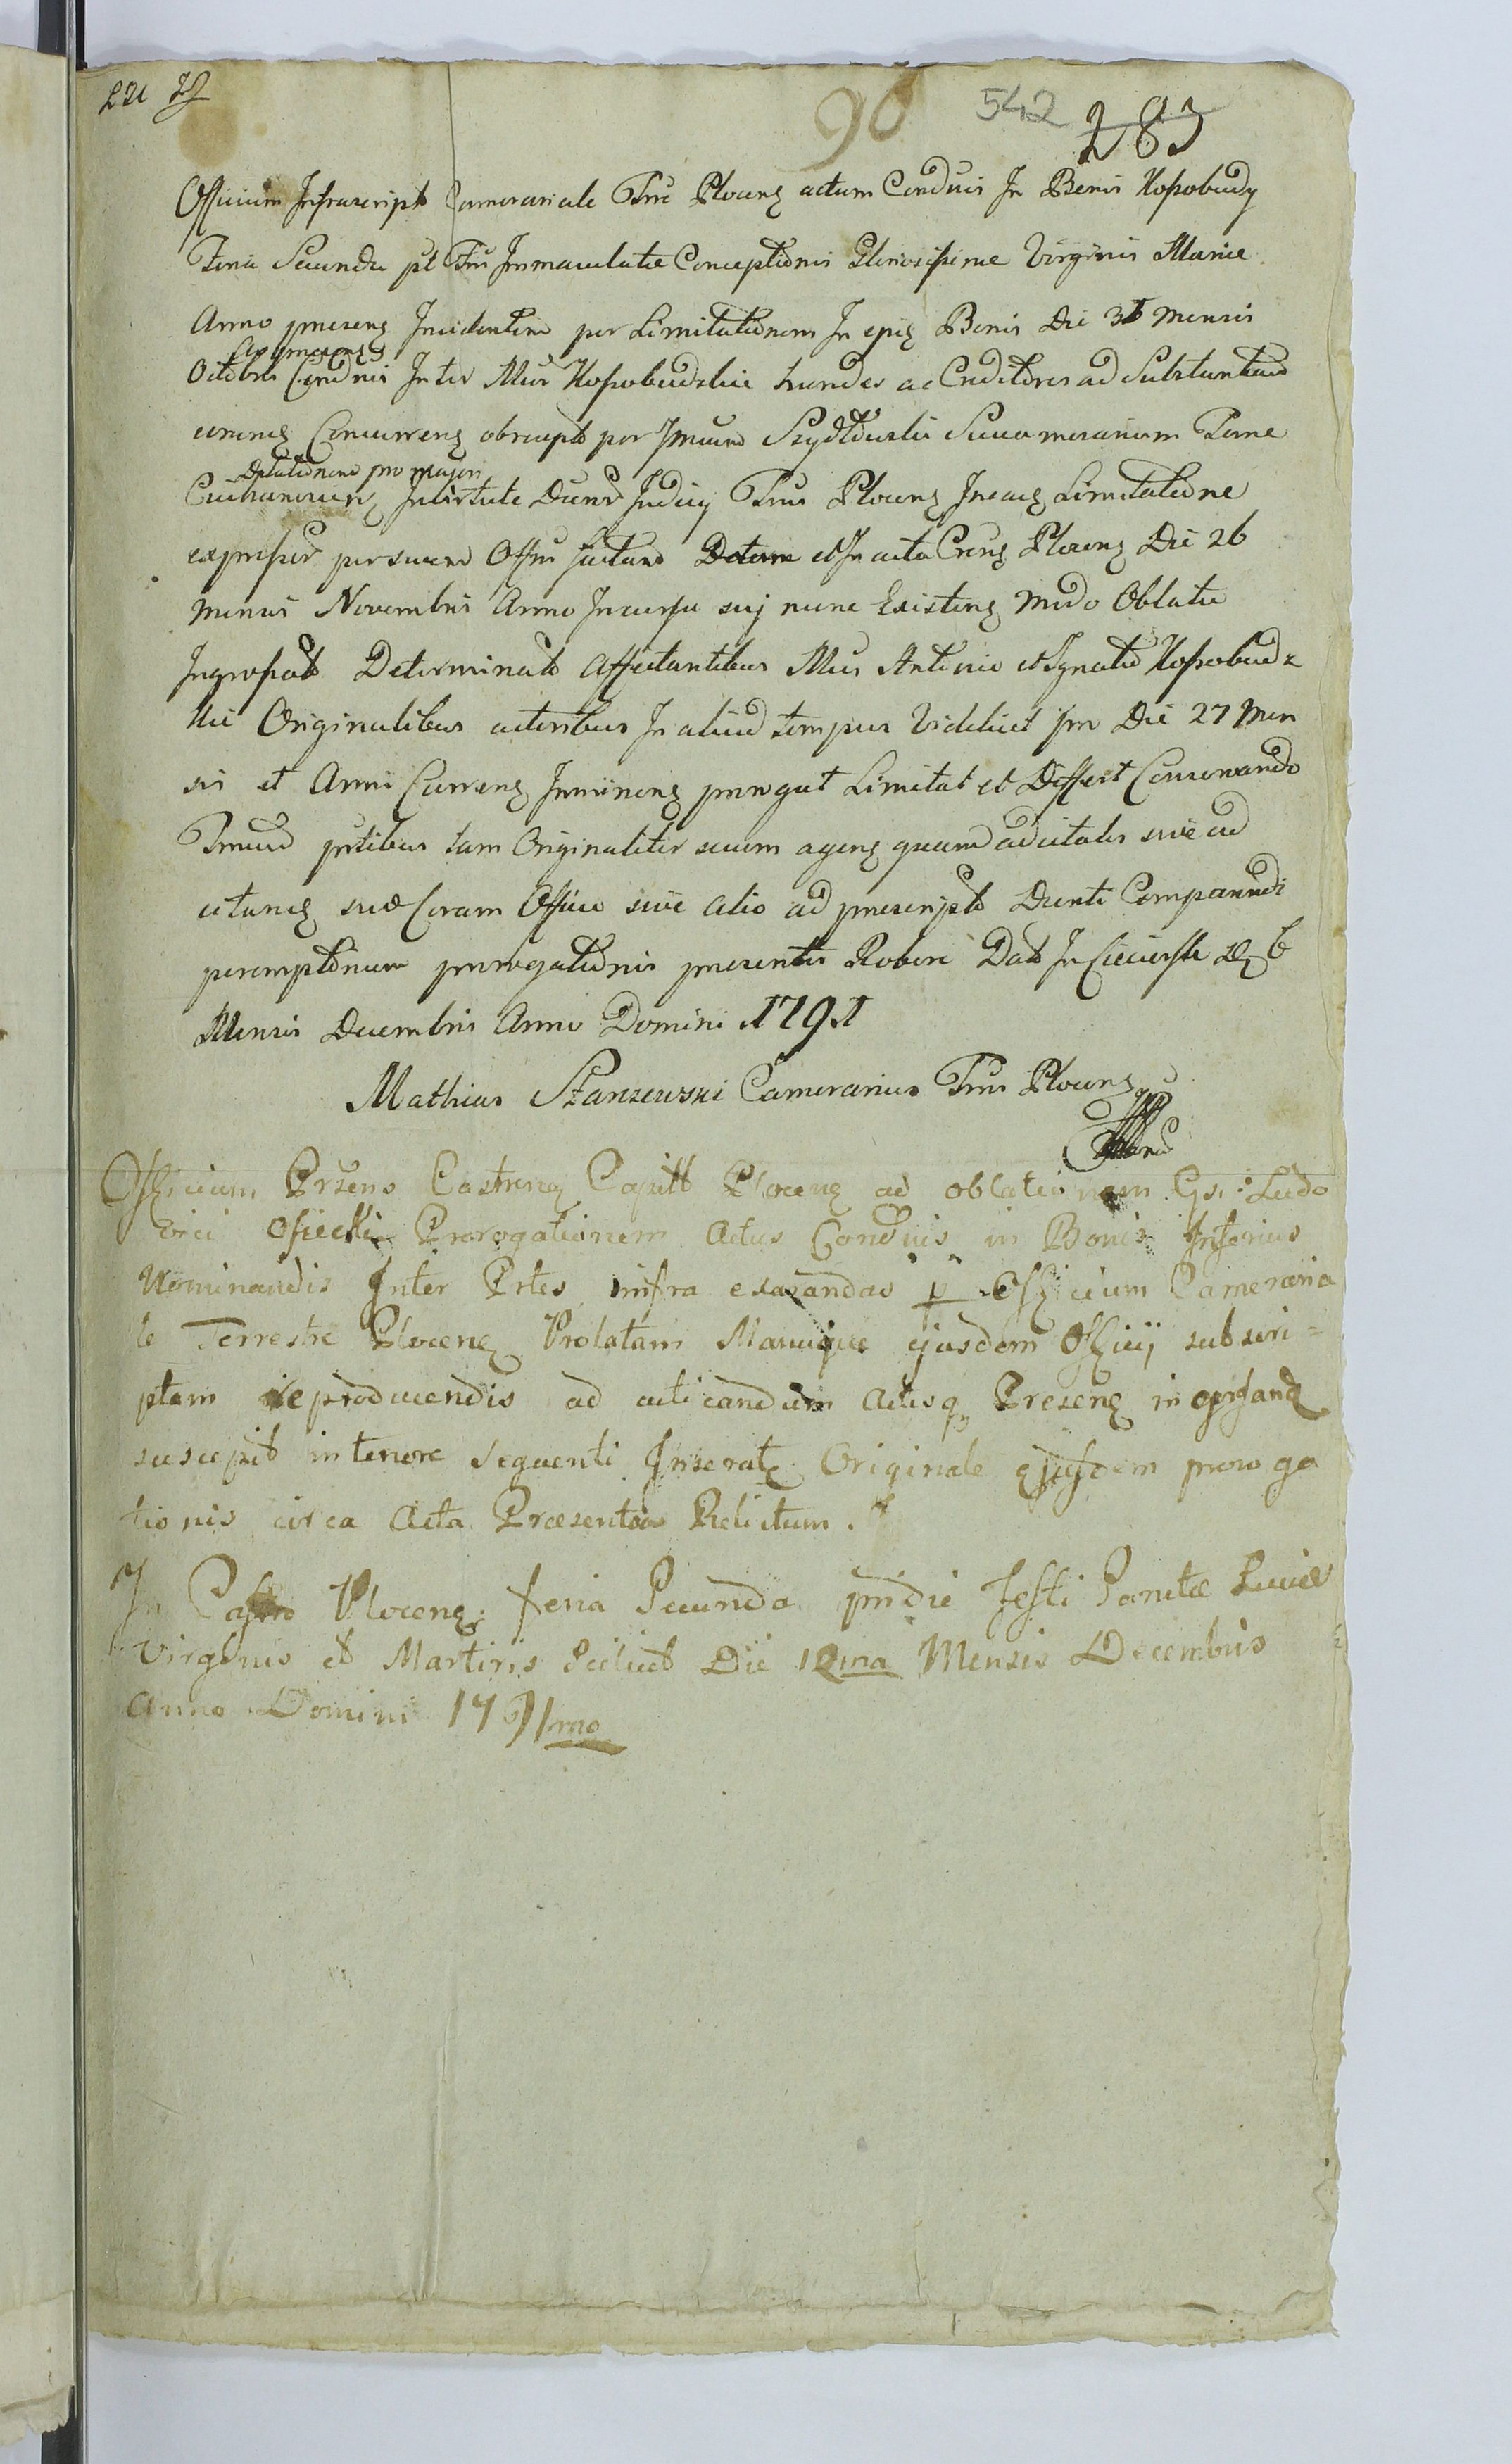 90 542 283
Officium Infrascript Camerariale Trre Plocens actum Condnis In Bonis Kossobudy
Feria Secunda pt Ftu Immaculatae Conceptionis Gloriosissimae Virginis Mariae
Anno praesens Incidentem per Limitationem In ejus Bonis Die 31 Mensis
Ao praesens
Octobris Condnis Inter Mcos Kossobudzkie haredes ac Creditores ad Substantiam
eorumq Concurrens obrcept per Szydłowski Succamerarium Terrae
Dilationem pro majori
Ciechanoviens In virtute Judicij Trris Plocens Limitatione
expressis per suum Offm factam et In acta Crens Plocens Die 26
Mensis Novembris Anno In cursu suj nunc Existens modo Oblatae
Ingrossat Determinat Affectantibus Mcis Antonio et Ignatio Kossobudz
kie Originalibus actoribus In aliud tempus Videlicet pro Die 27 Men
sis et Anni Currens Imminens prorogat Limitat et Differt Conservando
Trmum prtibus tam Originaliter secum agens quam adcitatis sive ad
citands suo Coram Officio sive alio ad praescript Dienti Comparendi
peremptorium prorogationis praesentis Robore Dat In 6
Mensis Decembris Anno Domini 1791
Mathias Starzewski Camerarius Trris Plocens
Officium Prsens Castrens Capitt Plocens ad oblationem Gsi: Ludo
vici Osiecki Prorogationem Actus Condnis in Bonis Inferius
Nominandis Inter Prtes infra exarandas p Officium Cameraria
le Terrestre Plocens Prolatam Manuque ejusdem Officij subscri=
ptam reproducendis ad acticandum Actisq Presens ingrssand
suscepit in tenore sequenti Inserats Originale ejusdem proroga
tionis circa Acta Praesentia Relictum.
In Castro Plocens feria Secunda pridie Festi Sanctae Luciae
Virginis et Martiris Scilicet Die 12ma Mensis Decembris
Anno Domini 1791mo